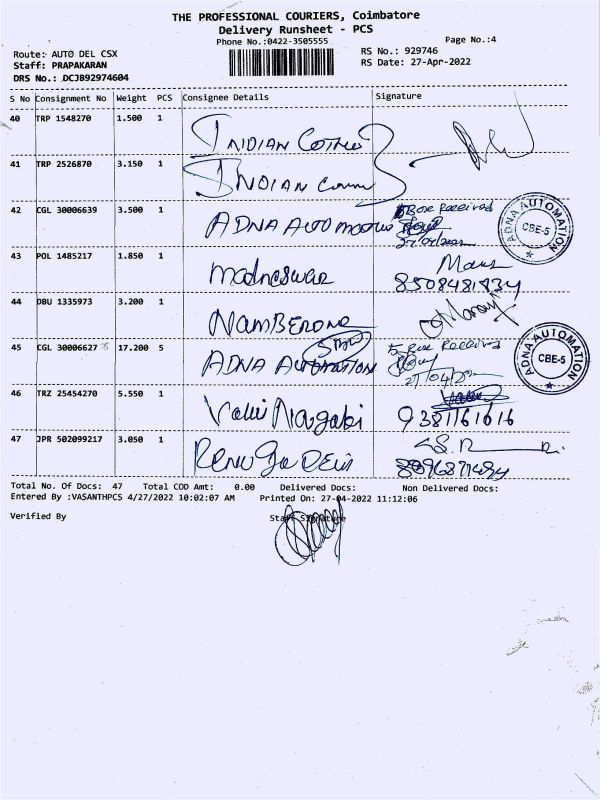 THE PROFESSIONAL COURIERS, Coimbatore
Delivery Runsheet - PCS
Phone No.:0422-3505555
Page No.:4
Route: AUTO DEL CSX
RS No.: 929746
Staff: PRAPAKARAN
RS Date: 27-Apr-2022
DRS No.: DCJB92974604
S No Consignment No Weight PCS Consignee Details Signature
40 TRP 1548270 1.500 1 INDIAN
41 TRP 2526870 3.150 1 INDIAN
42 CGL 30006639 3.500 1 ADNA Box Received
27/04/2022
ADNA AUTOMATION CBE-5
43 POL 1485217 1.850 1
44 DBU 1335973 3.200 1
45 CGL 30006627 17.200 5 ADNA AUTOMATION 5 Box Received
ADNA AUTOMATION CBE-5
46 TRZ 25454270 5.550 1 9381161616
47 JPR 502099217 3.050 1
Total No. Of Docs: 47 Total COD Amt: 0.00 Delivered Docs: Non Delivered Docs:
Entered By :VASANTHPCS 4/27/2022 10:02:07 AM Printed On: 27-04-2022 11:12:06
Verified By Staff Signature